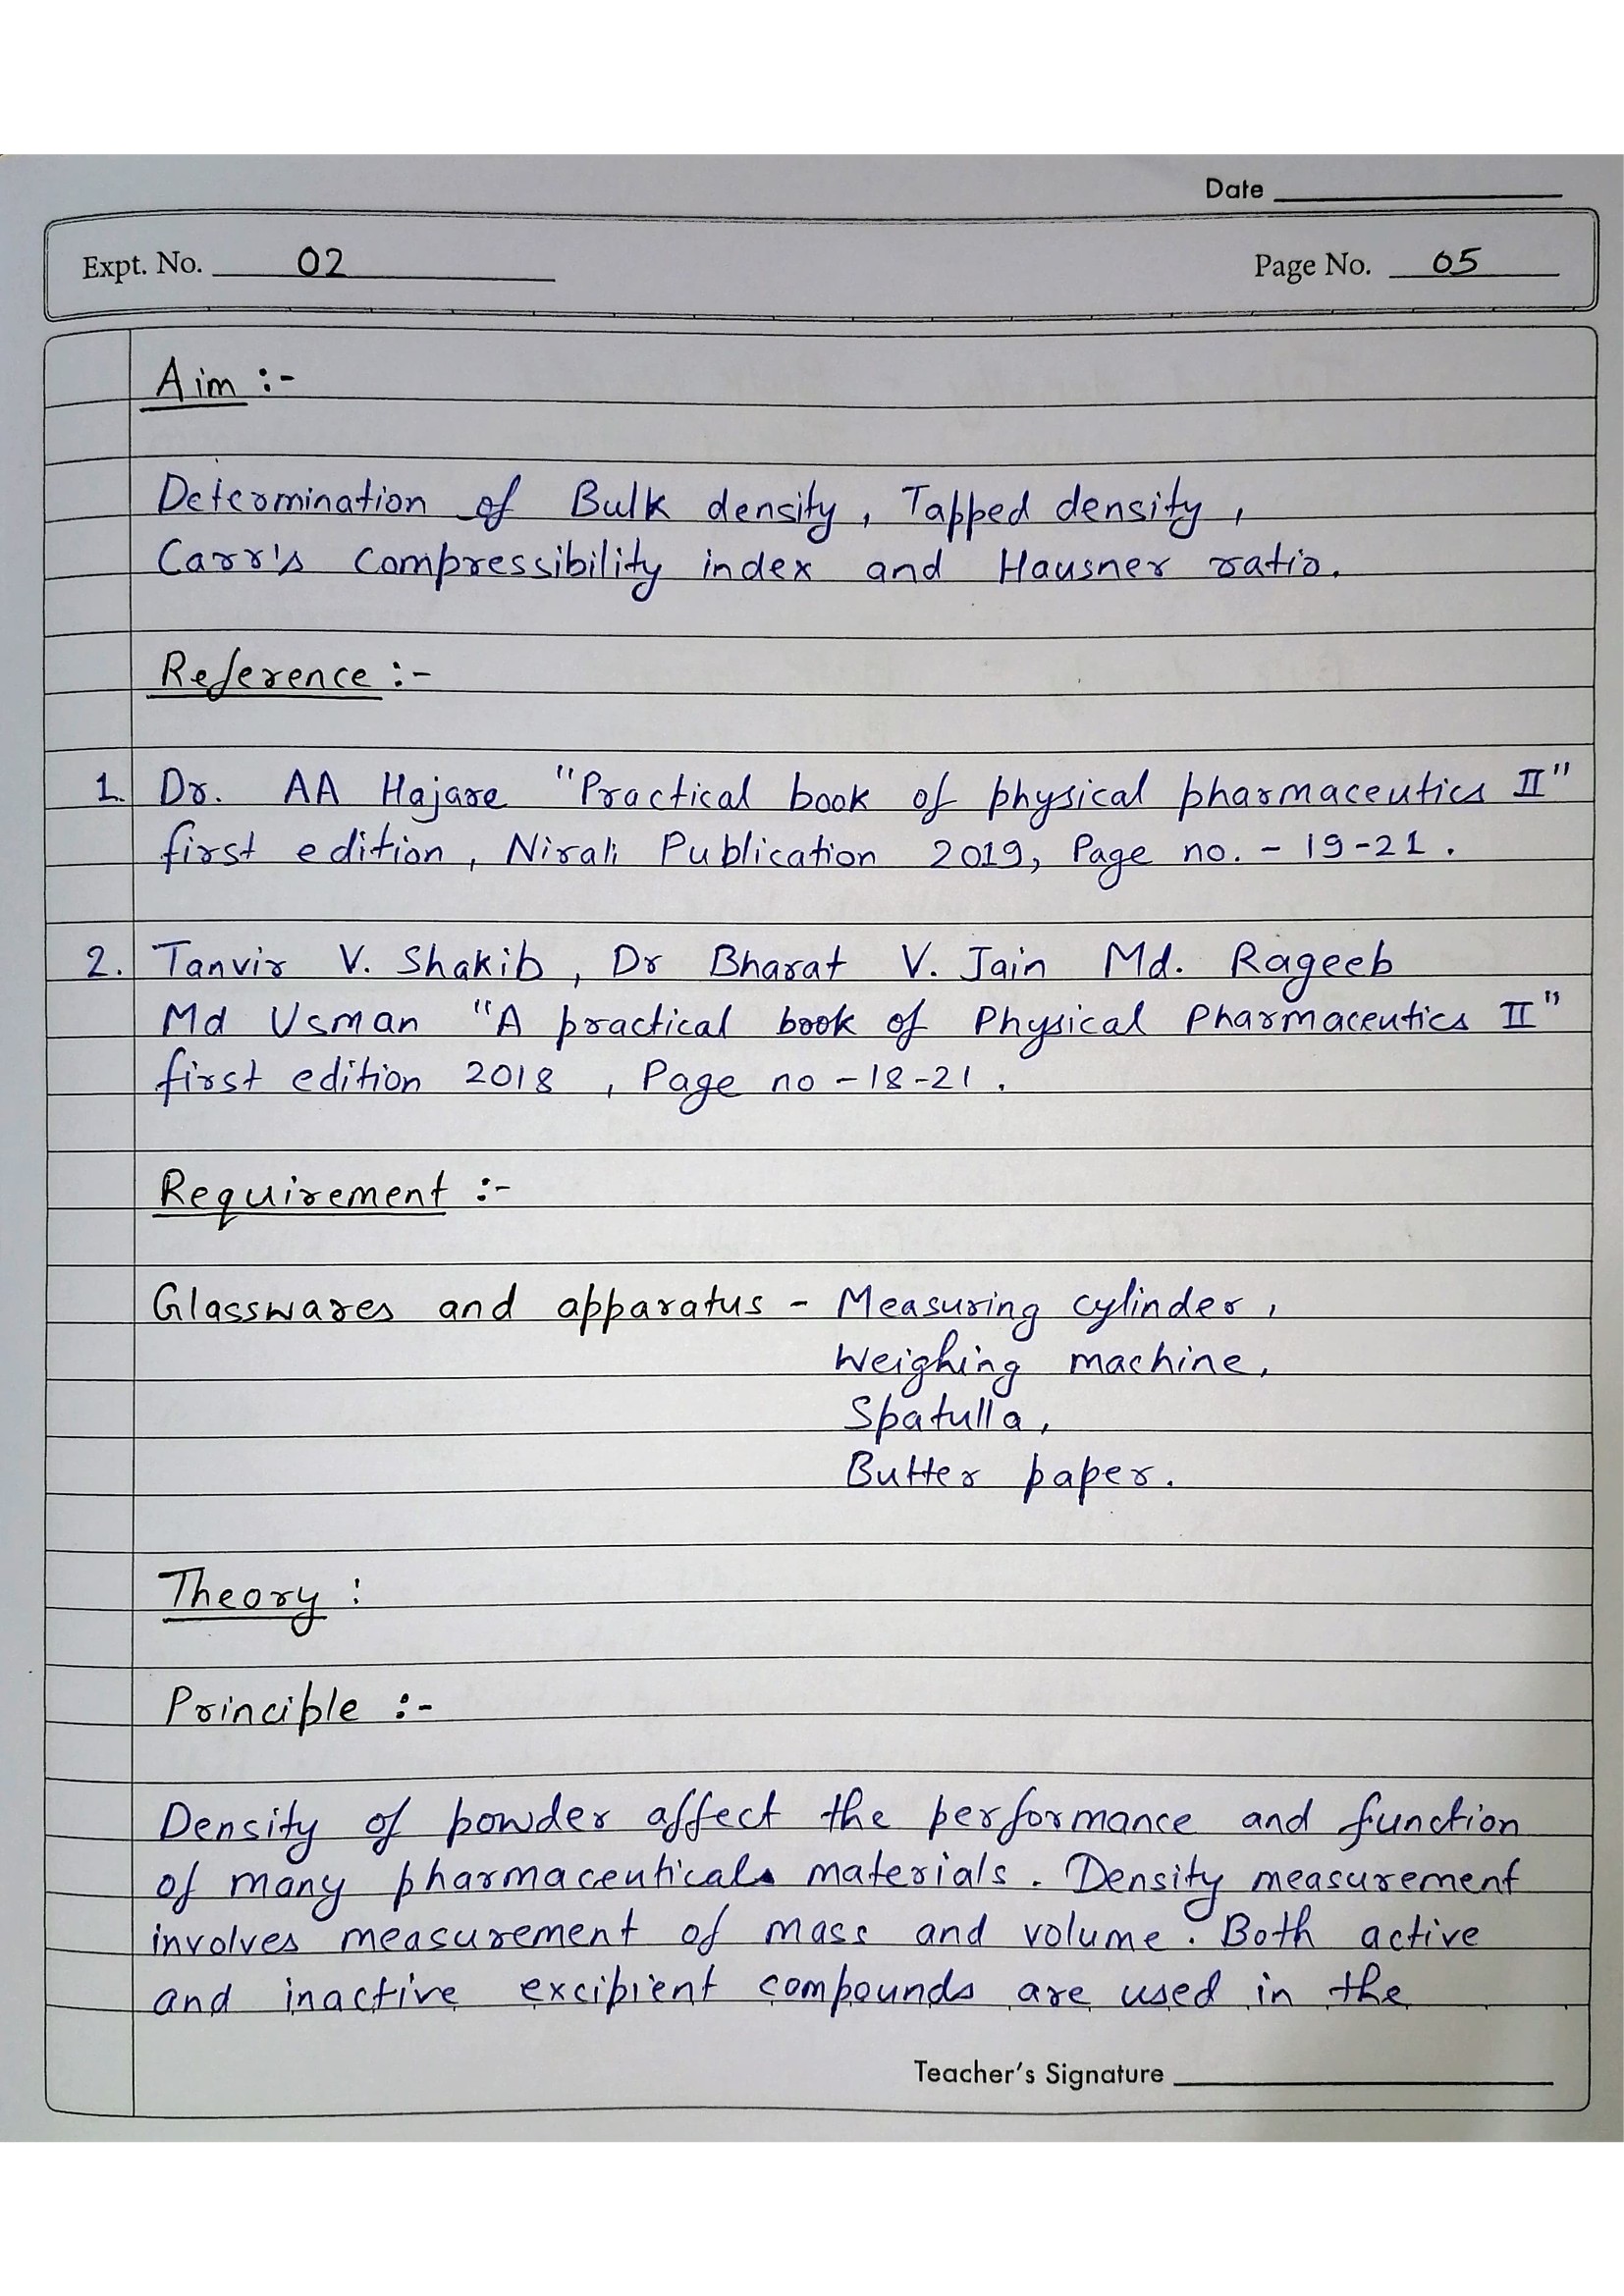 Date
Expt. No. 02
Page No. 05
Aim :-
Determination of Bulk density, Tapped density,
Carr's Compressibility index and Hausner ratio.
Reference :-
1. Dr. AA Hajare "Practical book of physical pharmaceutics II"
first edition, Nirali Publication 2019, Page no. - 19-21.
2. Tanvir V. Shakib, Dr Bharat V. Jain Md. Rageeb
Md Usman "A practical book of Physical Pharmaceutics II"
first edition 2018, Page no - 18-21.
Requirement :-
Glasswares and apparatus - Measuring cylinder,
Weighing machine,
Spatulla,
Butter paper.
Theory :
Principle :-
Density of powder affect the performance and function
of many pharmaceuticals materials. Density measurement
involves measurement of mass and volume. Both active
and inactive excipient compounds are used in the
Teacher's Signature